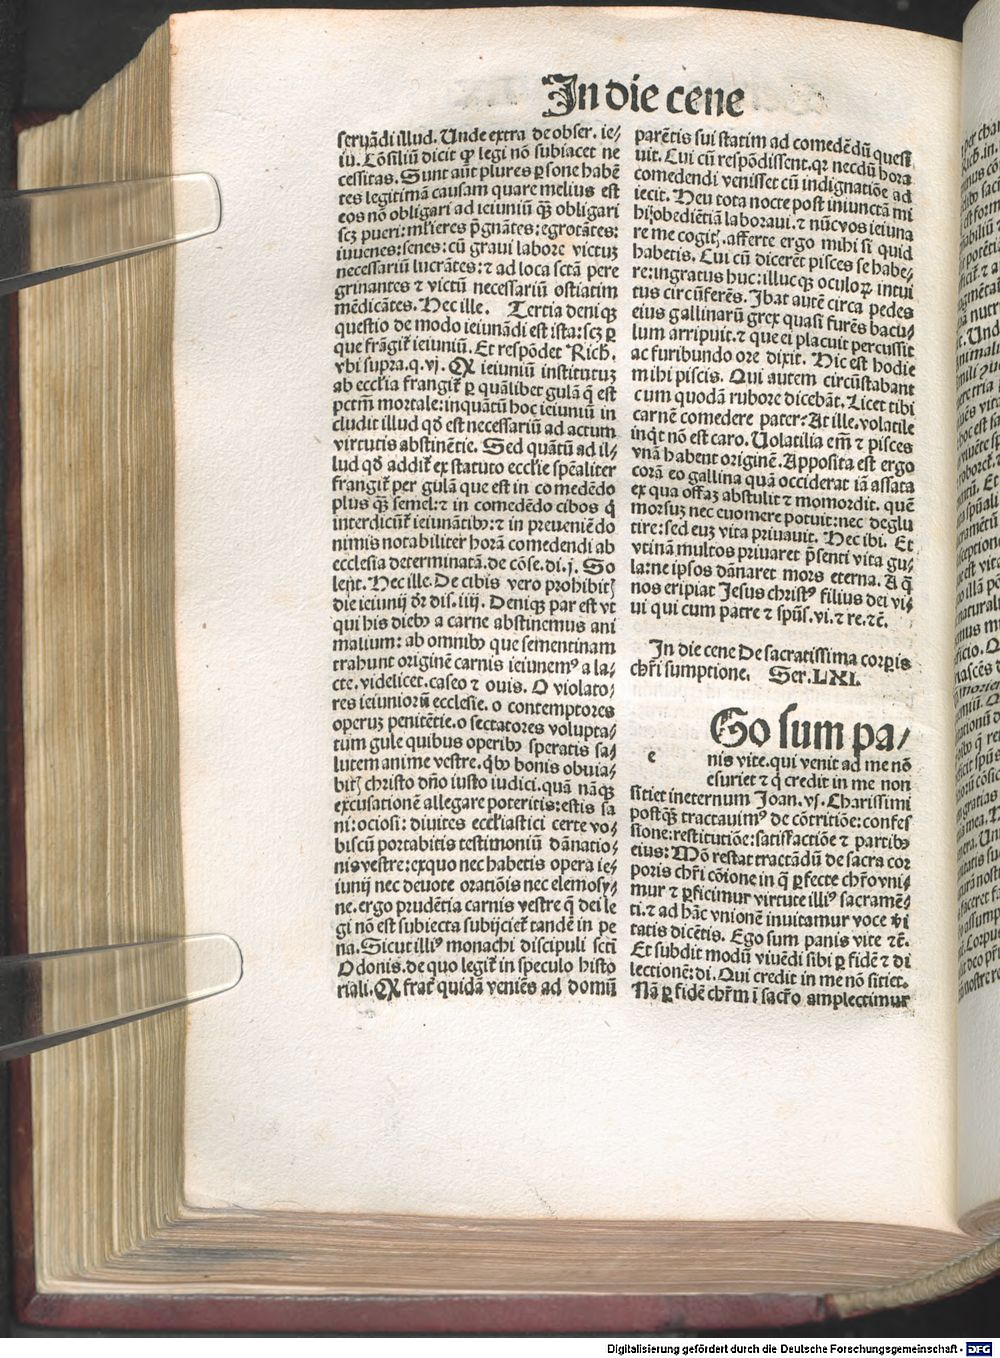 In die cene
seruādi illud. Unde extra de obser. ie/
iu. Cōsiliū dicit ꝙ legi nō subiacet ne
cessitas. Sunt aūt plures ꝑsone habē
tes legitimā causam quare melius est
eos nō obligari ad ieiuniū qꝫ̄ obligari
scꝫ pueri: ml̓ieres p̄gnātes: egrotātes:
iuuenes: senes: cū graui labore victuꝫ
necessariū lucrātes: ⁊ ad loca sctā pere
grinantes ⁊ victū necessariū ostiatim
mēdicātes. Hec ille. Tertia deniqꝫ
questio de modo ieiunādi est ista: scꝫ ꝑ
que frāgit̄ ieiuniū. Et respōdet Rich.
vbi supra. q. vj. Ꝙ ieiuniū institutuꝫ
ab ecclīa frangit̄ ꝑ quālibet gulā q̄ est
pctm̄ mortale: inquātū hoc ieiuniū in
cludit illud qd̄ est necessariū ad actum
virtutis abstinētie. Sed quātū ad il/
lud qd̄ addit̄ ex statuto ecclīe spēaliter
frangit̄ per gulā que est in comedēdo
plus qꝫ̄ semel: ⁊ in comedēdo cibos q̄
interdicūt̄ ieiunātibꝰ: ⁊ in preueniēdo
nimis notabiliter horā comedendi ab
ecclesia determinatā. de cōse. di. j. So
lent. Hec ille. De cibis vero prohibitꝭ
die ieiunij dr̄ dis. iiij. Deniqꝫ par est vt
qui his diebꝰ a carne abstinemus ani
malium: ab omnibꝰ que sementinam
trahunt originē carnis ieiunemꝰ a la/
cte. videlicet. caseo ⁊ ouis. O violato/
res ieiuniorū ecclesie. o contemptores
operuꝫ penitētie. o sectatores volupta/
tum gule quibus operibꝰ speratis sa/
lutem anime vestre. qͥbꝰ bonis obuia/
bitꝭ christo dn̄o iusto iudici. quā nāqꝫ
excusationē allegare poteritis: estis sa
ni: ociosi: diuites ecclīastici certe vo/
biscū portabitis testimoniū dānatio/
nis vestre: exquo nec habetis opera ie/
iunij nec deuote oratiōis nec elemosy/
ne. ergo prudētia carnis vestre q̄ dei le
gi nō est subiecta subijciet̄ tandē in pe
na. Sicut illiꝰ monachi discipuli sctī
Odonis. de quo legit̄ in speculo histo
riali. Ꝙ frat̄ quidā veniēs ad domū
parētis sui statim ad comedēdū quesi
uit. Cui cū respōdissent. qꝛ necdū hora
comedendi venisset cū indignatiōe ad
iecit. Heu tota nocte post iniunctā mi
hi obediētiā laboraui. ⁊ nūc vos ieiuna
re me cogitꝭ. afferte ergo mihi si quid
habetis. Cui cū dicerēt pisces se habe/
re: ingratus huc: illucqꝫ oculoꝝ intui
tus circūferēs. Ibat autē circa pedes
eius gallinarū grex quasi furēs bacu/
lum arripuit. ⁊ que ei placuit percussit
ac furibundo ore dixit. Hic est hodie
mihi piscis. Qui autem circūstabant
cum quodā rubore dicebāt. Licet tibi
carnē comedere pater? At ille. volatile
inqͥt nō est caro. Uolatilia em̄ ⁊ pisces
vnā habent originē. Apposita est ergo
corā eo gallina quā occiderat iā assata
ex qua offaꝫ abstulit ⁊ momordit. quē
morsuꝫ nec euomere potuit: nec deglu
tire: sed euꝫ vita priuauit. Hec ibi. Et
vtinā multos priuaret p̄senti vita gu/
la: ne ipsos dānaret mors eterna. A q̄
nos eripiat Jesus christꝰ filius dei vi/
ui qui cum patre ⁊ spūs. vi. ⁊ re. ⁊c̄.
In die cene De sacratissima corꝑis
chr̄i sumptione. Ser. LXI.
e
Go sum pa/
nis vite. qui venit ad me nō
esuriet ⁊ q̄ credit in me non
sitiet ineternum Joan. vj. Charissimi
postqꝫ̄ tractauimꝰ de cōtritiōe: confes
sione: restitutiōe: satisfactiōe ⁊ partibꝰ
eius: Mō restat tractādū de sacra cor
poris chr̄i cōione in q̄ ꝑfecte chr̄o vni/
mur ⁊ ꝑficimur virtute illiꝰ sacramē/
ti. ⁊ ad hāc vnionē inuitamur voce vi
tatis dicētis. Ego sum panis vite ⁊c̄.
Et subdit modū viuēdi sibi ꝑ fidē ⁊ di
lectionē: di. Qui credit in me nō sitiet.
Nā ꝑ fidē chr̄m ī sacr̄o amplectimur
Digitalisierung gefördert durch die Deutsche Forschungsgemeinschaft - DFG